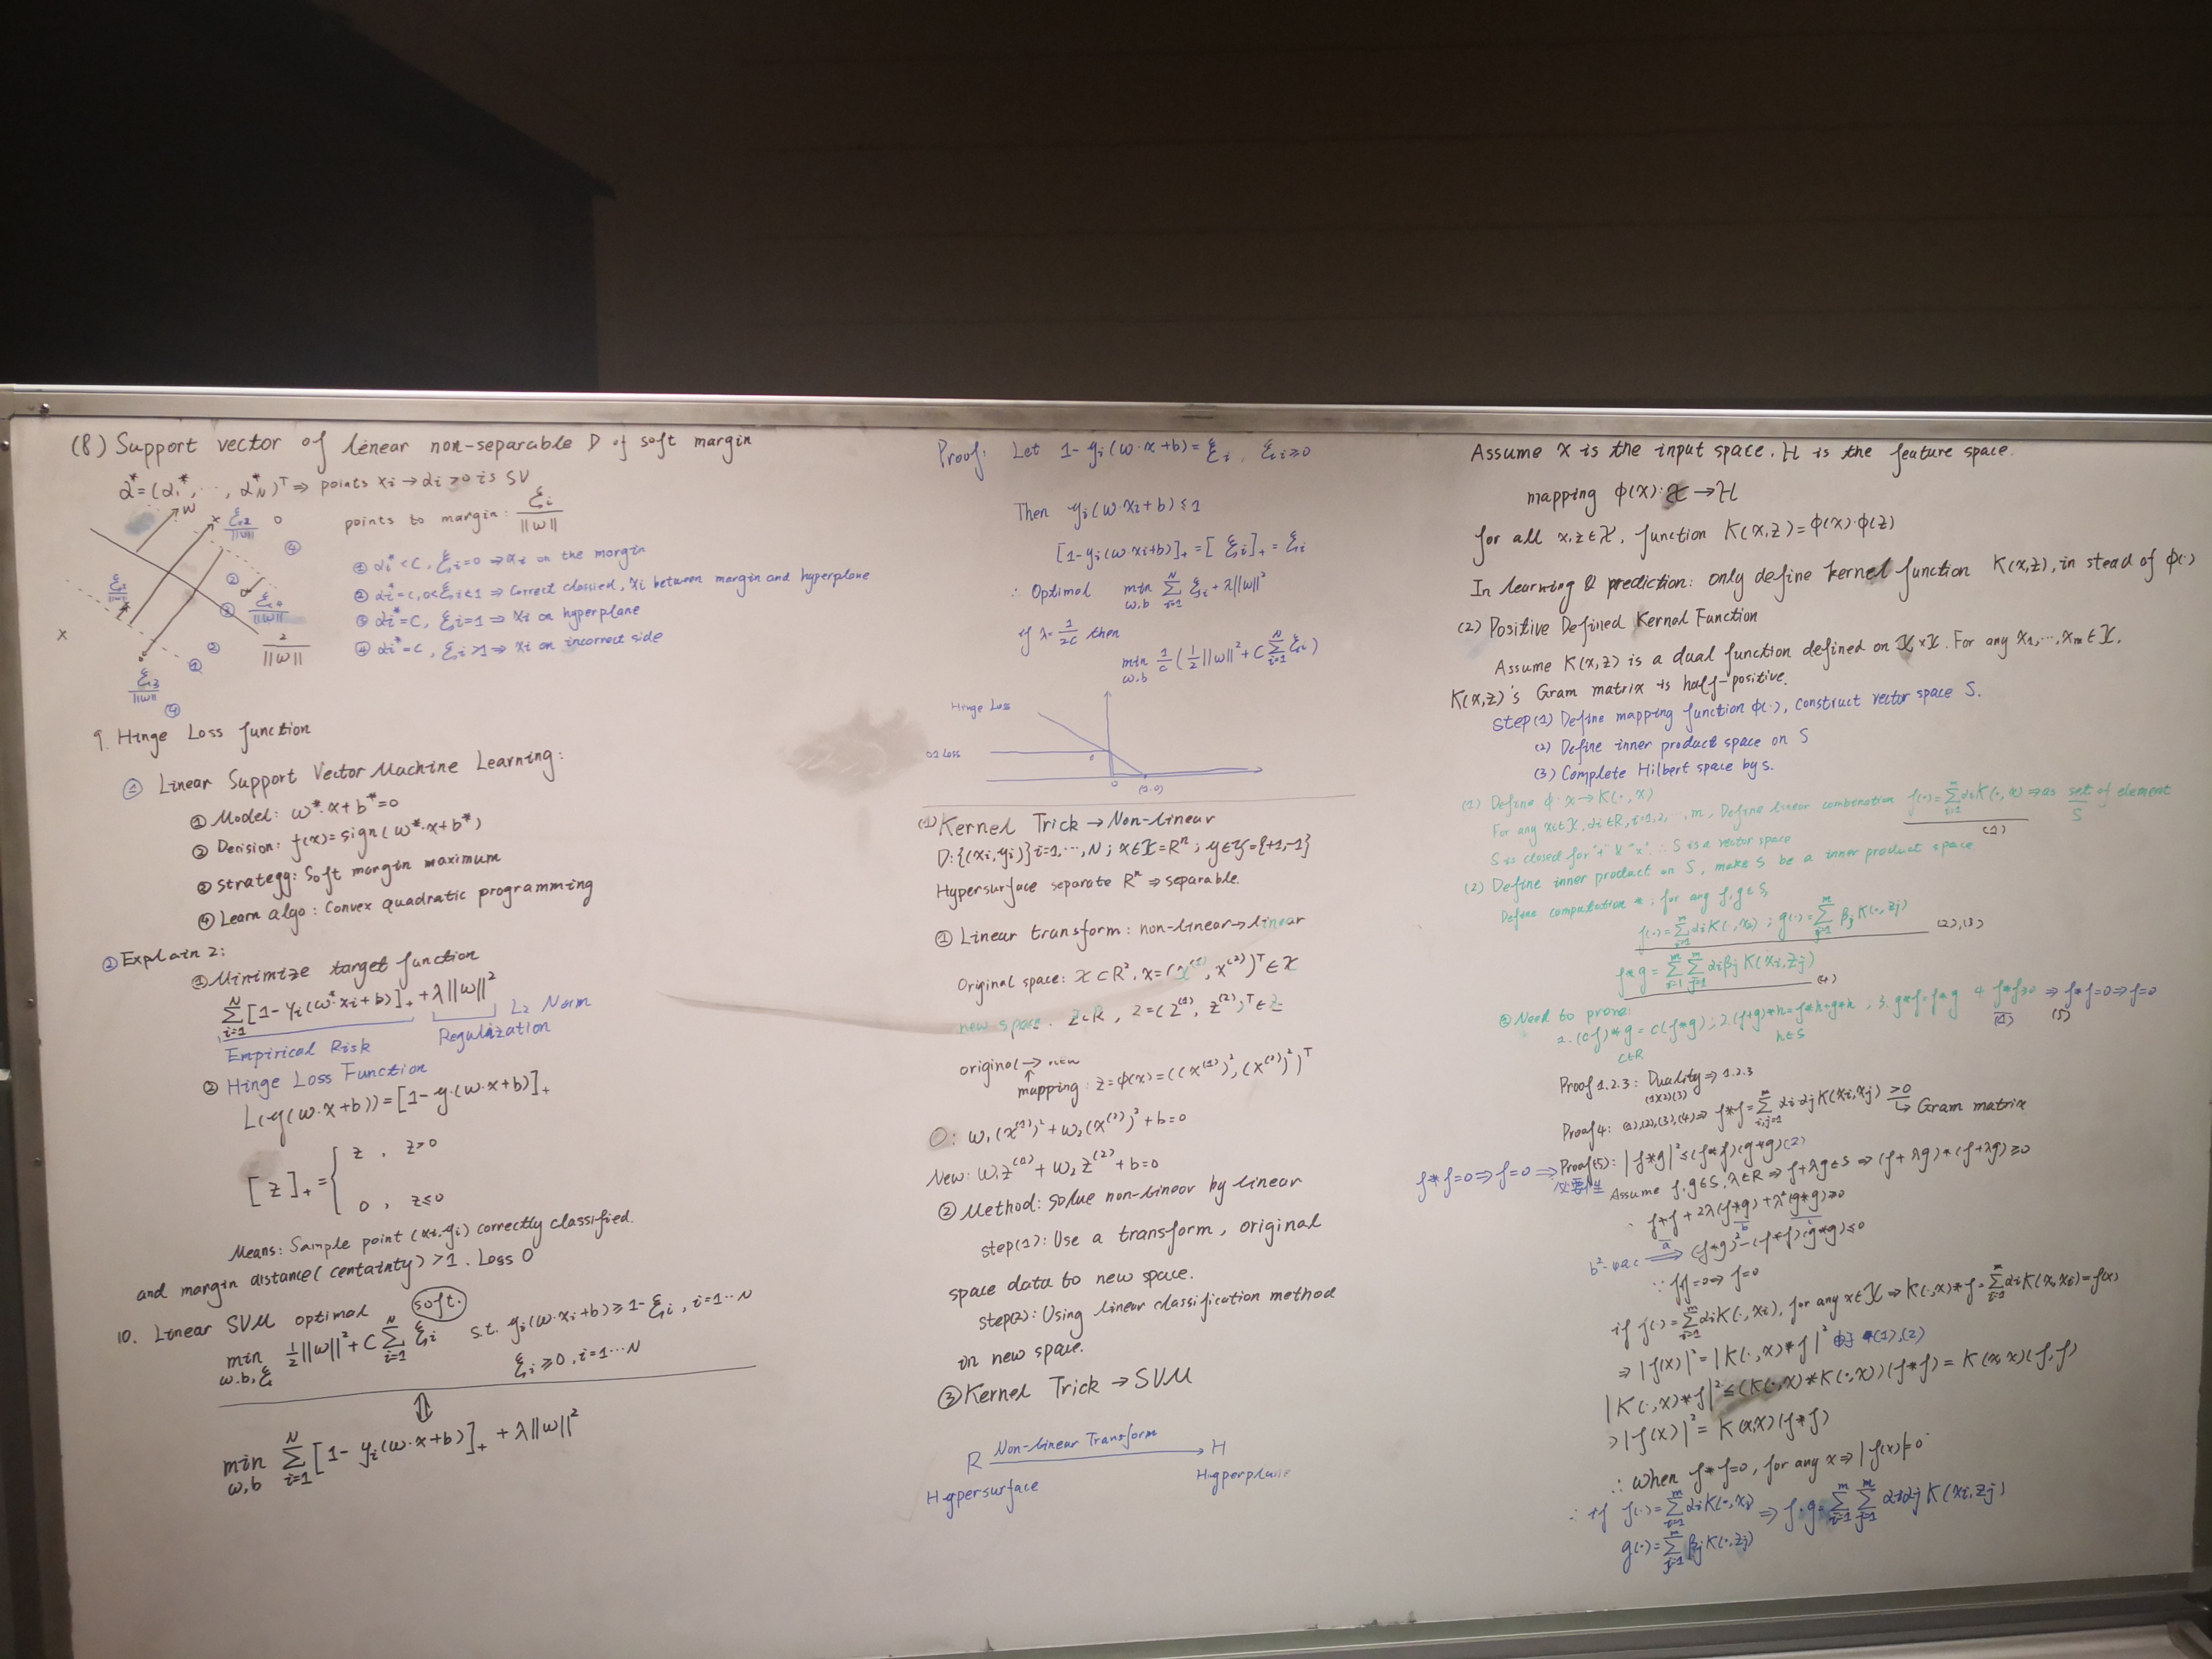 (8) Support vector of linear non-separable D of soft margin
α* = (α₁*, ···, α*_N)ᵀ ⇒ points xi → αi > 0 is SV
points to margin: ξi / ||w||
① αi* < C, ξi = 0 ⇒ xi on the margin
② αi* = C, 0<ξi<1 ⇒ correct classied, xi between margin and hyperplane
③ αi* = C, ξi = 1 ⇒ xi on hyperplane
④ αi* = C, ξi > 1 ⇒ xi on incorrect side
w
x
ξ2 / ||w||
o
④
②
③
2 / ||w||
x
①
②
ξ3 / ||w||
④
9. Hinge Loss function
① Linear Support Vector Machine Learning:
① Model: w*·x+b* = 0
② Decision: f(x) = sign(w*·x+b*)
③ Strategg: Soft margin maximum
④ Learn algo: Convex quadratic programming
② Explain 2:
① Minimize target function
Σ_{i=1}^{N} [1 - yi(w*·xi+b)]₊ + λ||w||²
L₂ Norm
Empirical Risk Regulization
② Hinge Loss Function
L(y(w·x+b)) = [1 - y·(w·x+b)]₊
[z]₊ = { z , z>0
0 , z≤0
Means: Sample point (xi, yi) correctly classified.
and margin distance (centainty) > 1. Loss 0
10. Linear SVM optimal soft.
min_{w,b,ξ} ½||w||² + C Σ_{i=1}^{N} ξi s.t. yi(w·xi+b) ≥ 1-ξi, i=1···N
ξi ≥ 0, i=1···N
⇕
min_{w,b} Σ_{i=1}^{N} [1 - yi(w·x+b)]₊ + λ||w||²
Proof: Let 1 - yi(w·x+b) = ξi, ξi ≥ 0
Then yi(w·xi+b) ≤ 1
[1-yi(w·xi+b)]₊ = [ξi]₊ = ξi
∴ Optimal min_{w,b} Σ_{i=1}^{N} ξi + λ||w||²
if λ = 1/2C then
min_{w,b} 1/C (½||w||² + C Σ_{i=1}^{N} ξi)
Hinge Loss
01 Loss
0
(1.0)
(1) Kernel Trick → Non-linear
D: {(xi, yi)} i=1,···,N ; x∈X=Rⁿ ; y∈Y={+1,-1}
Hypersurface separate Rⁿ ⇒ separable.
① Linear transform: non-linear → linear
Original space: X ⊂ R², x = (x⁽¹⁾, x⁽²⁾)ᵀ ∈ X
new space. Z⊂R, z = (z⁽¹⁾, z⁽²⁾)ᵀ ∈ Z
original → new
↑
mapping: z = φ(x) = ((x⁽¹⁾)², (x⁽²⁾)²)ᵀ
O: w₁(x⁽¹⁾)² + w₂(x⁽²⁾)² + b = 0
New: w₁z⁽¹⁾ + w₂z⁽²⁾ + b = 0
② Method: solue non-linear by linear
step(1): Use a transform, original
space data to new space.
step(2): Using linear classification method
in new space.
③ Kernel Trick → SVM
R Non-linear Transform → H
Hypersurface Hyperplane
Assume X is the input space. H is the feature space.
mapping φ(x): X → H
for all x,z∈X, function K(x,z) = φ(x)·φ(z)
In learning & prediction: only define kernel function K(x,z), in stead of φ(·)
(2) Positive Defined Kernel Function
Assume K(x,z) is a dual function defined on X×X. For any x₁,···,xm∈X.
K(x,z)'s Gram matrix is half-positive.
Step(1) Define mapping function φ(·), construct vector space S.
(2) Define inner product space on S
(3) Complete Hilbert space by S.
(1) Define φ: x → K(·, x)
For any xi∈X, αi∈R, i=1,2,···,m, Define linear combination f(·) = Σ_{i=1}^{m} αiK(·, xi) ⇒ as set of element
(1) S
S is closed for "+" & "×". ∴ S is a vector space
(2) Define inner product on S, make S be a inner product space
Define computation *; for any f,g∈S
f(·) = Σ_{i=1}^{m} αiK(·, xi) ; g(·) = Σ_{j=1}^{m} βjK(·, zj) (2),(3)
f*g = Σ_{i=1}^{m} Σ_{j=1}^{m} αiβjK(xi, zj)
(4)
③ Need to prove:
1. (cf)*g = c(f*g); 2. (f+g)*h = f*h+g*h, 3. g*f = f*g 4. f*f≥0 ⇒ f*f=0 ⇒ f=0
c∈R h∈S (5)
Proof 1.2.3: Duality ⇒ 1.2.3
(1)(2)(3)
Proof 4: (1),(2),(3),(4) ⇒ f*f = Σ_{i,j=1}^{m} αiαjK(xi, xj) ≥ 0
↳ Gram matrix
f*f=0 ⇒ f=0 ⇒ Proof(5): |f*g|² ≤ (f*f)(g*g) (2)
必要性 Assume f,g∈S, λ∈R ⇒ f+λg∈S ⇒ (f+λg)*(f+λg) ≥ 0
∴ f*f + 2λ(f*g) + λ²(g*g) ≥ 0
a b
b²-4ac ⟹ (f*g)² - (f*f)(g*g) ≤ 0
if f(·) = Σ_{i=1}^{m} αiK(·, xi), for any x∈X ⇒ K(·, x)*f = Σ_{i=1}^{m} αiK(x, xi) = f(x)
⇒ |f(x)|² = |K(·, x)*f|² (1),(2)
|K(·, x)*f|² ≤ (K(·, x)*K(·, x))(f*f) = K(x, x)(f, f)
⇒ |f(x)|² = K(x,x)(f*f)
∴ When f*f=0, for any x ⇒ |f(x)|=0
∴ if f(·) = Σ_{i=1}^{m} αiK(·, xi) ⇒ f·g = Σ_{i=1}^{m} Σ_{j=1}^{m} αiαjK(xi, zj)
g(·) = Σ_{j=1}^{m} βjK(·, zj)